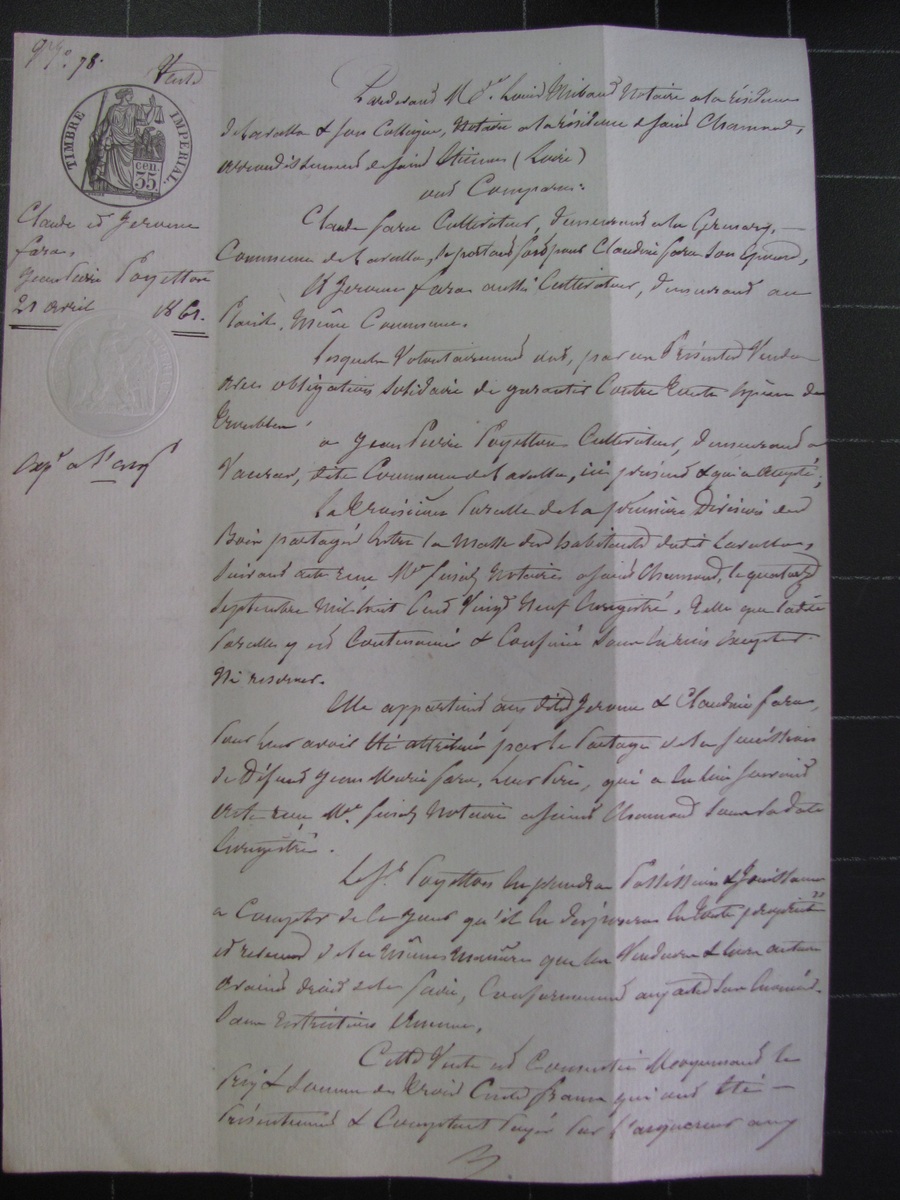 N° 78.
Vente
TIMBRE IMPERIAL.
cen. 35
Claude et Jerome
fara
Jean Pierre Poyetton
21 avril 1861.
Pardevant Me Louis Notaire a la résidence
de Lavalla & son Collegue, Notaire a la résidence de Saint Chamond,
arrondissement de Saint Etienne (Loire)
ont Comparu:
Claude fara Cultivateur, demeurant a la
Commune de Lavalla, se portant fort pour Claudine fara son
Et Jerome fara aussi Cultivateur, demeurant au
même Commune.
Lesquels Volontairement ont, par ces Présentes Vendu
avec obligation solidaire de garantir Contre toute espèce de
troubles
a Jean Pierre Poyetton Cultivateur, demeurant a
dite Commune de Lavalla, ici présent & qui a accepté;
La troisieme Parcelle de la première Division des
Bois partagés Entre la Masse des habitants dudit Lavalla,
suivant acte reçu Me Notaire a Saint Chamond, le quatorze
Septembre Mil huit Cent Vingt Neuf Enregistré, telle que ladite
Parcelle y est Contenancé & Confinée Sans en rien Excepter
Ni reserver.
Elle appartient aux dits Jerome & Claudine fara,
Pour leur avoir été attribuée par le Partage de la succession
de Défunt Jean Marie fara, leur Père, qui a eu lieu suivant
acte reçu Me Notaire a Saint Chamond Sous Sa date
Enregistré.
Le Sr Poyetton En prendra Possession & Jouissance
a Compter de ce Jour qu'il En disposera En toute propriété
et de la Même Manière que les Vendeurs & leurs auteurs
avaient droit de le faire, Conformement aux actes Sus Enoncés
Sans restriction aucune.
Cette Vente est Consentie Moyennant le
Prix & Somme de Trois Cents francs qui ont été
Présentement & Comptant Payés Par l'acquereur aux